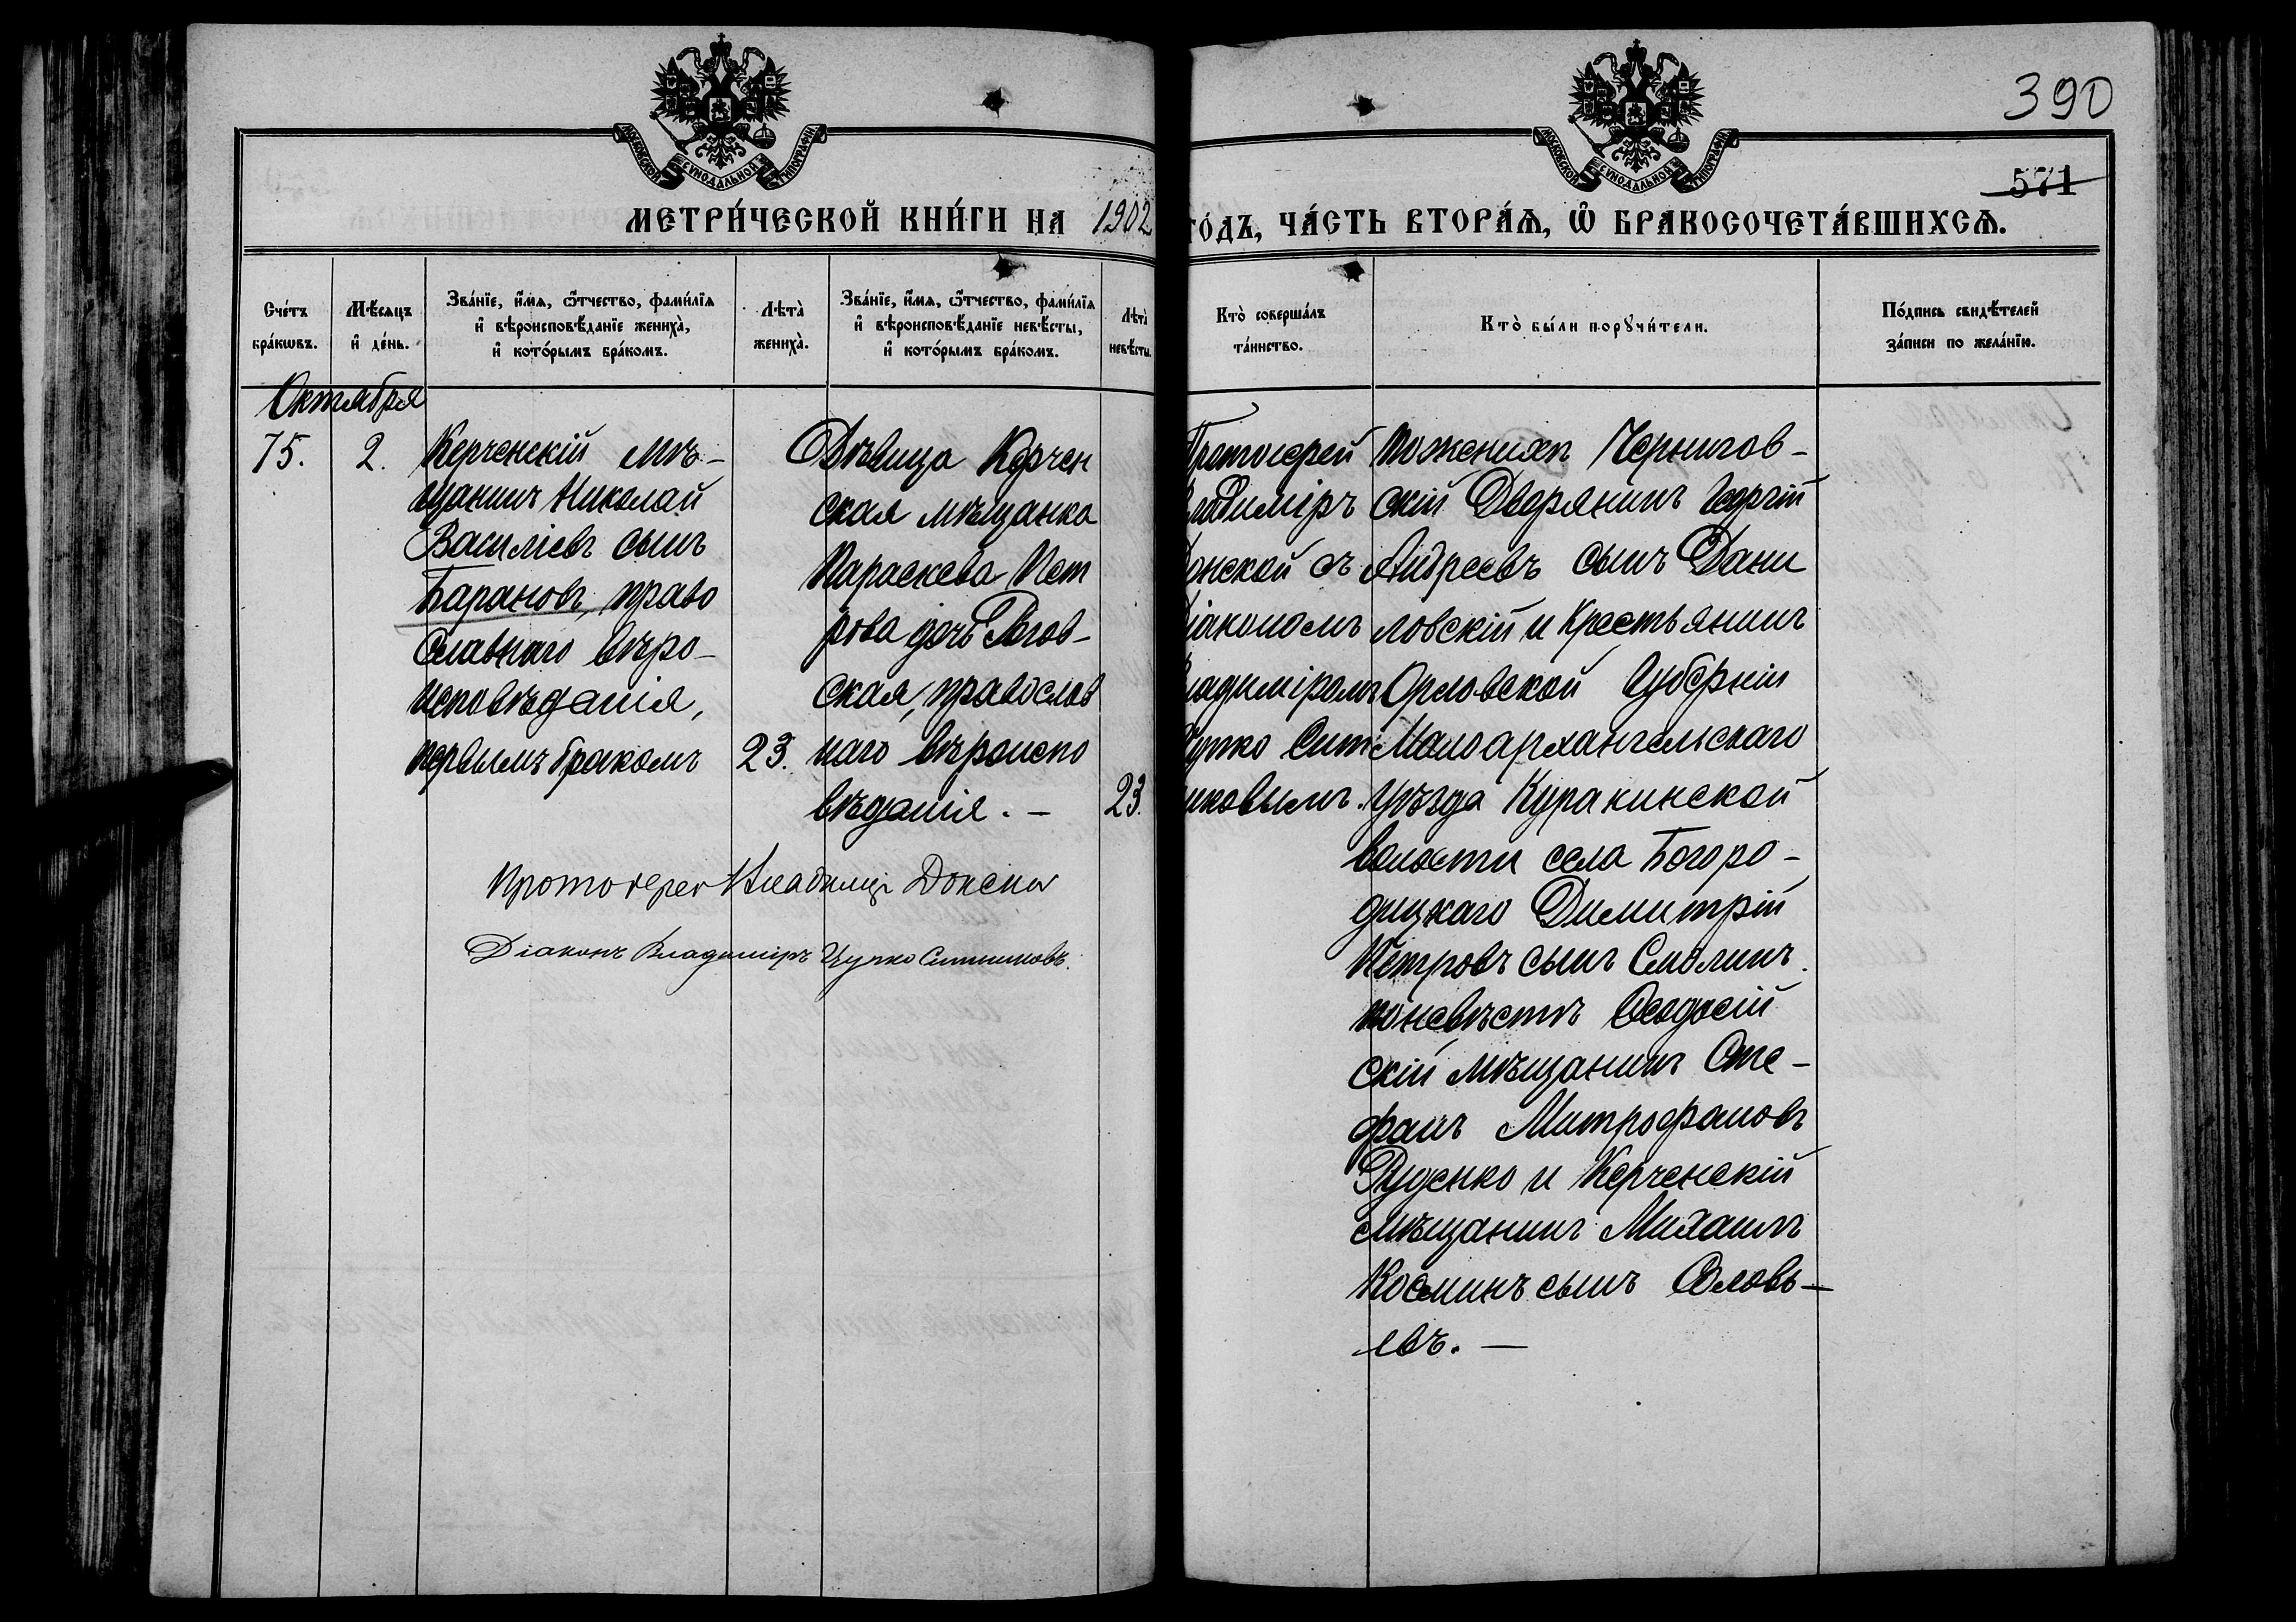 390
571
МОСКОВСКОЙ СѴНОДАЛЬНОЙ ТИПОГРАФІИ
МОСКОВСКОЙ СѴНОДАЛЬНОЙ ТИПОГРАФІИ
МЕТРИ́ЧЕСКОЙ КНИ́ГИ НА 1902
ГО́ДЪ, ЧА́СТЬ ВТОРА́Ѧ, Ѿ БРАКОСОЧЕТА́ВШИХСѦ.
Сче́тъ
бра́кѡвъ.
Мѣ́сяцъ
и҆ де́нь.
Зва́нїе, и҆́мѧ, ѻ҆́тчество, фами́лїѧ
и҆ вѣроисповѣ́данїе жениха̀,
и҆ кото́рымъ бра́комъ.
Лѣта̀
жениха̀.
Зва́нїе, и҆́мѧ, ѻ҆́тчество, фами́лїѧ
и҆ вѣроисповѣ́данїе невѣ́сты,
и҆ кото́рымъ бра́комъ.
Лѣта̀
невѣ́сты.
Кто̀ соверша́лъ
та́инство.
Кто̀ бы́ли порꙋчи́тели.
По́дпись свидѣ́телей
за́писи по жела́нїю.
Октября
75.
2.
Керченскій мѣ-
щанинъ Николай
Василіевъ сынъ
Барановъ, право
славнаго вѣро-
исповѣданія,
первымъ бракомъ
23.
Дѣвица Керчен
ская мѣщанка
Параскева Пет
рова дочь Рогов-
ская, православ
наго вѣроиспо
вѣданія. -
23.
Протоіерей
Владиміръ
Донской съ
діакономъ
Владиміромъ
Цупко Сит
никовымъ.
По женихѣ Чернигов-
скій Дворянинъ Георгій
Андреевъ сынъ Дани
ловскій и Крестьянинъ
Орловской Губерніи
Малоархангельскаго
уѣзда Куракинской
волости села Богоро-
дицкаго Димитрій
Петровъ сынъ Смолинъ.
по невѣстѣ Ѳеодосій
скій мѣщанинъ Сте-
фанъ Митрофановъ
Руденко и Керченскій
мѣщанинъ Михаилъ
Косминъ сынъ Соловь-
евъ. -
Протоіерей Владиміръ Донской
Діаконъ Владиміръ Цупко Ситниковъ.